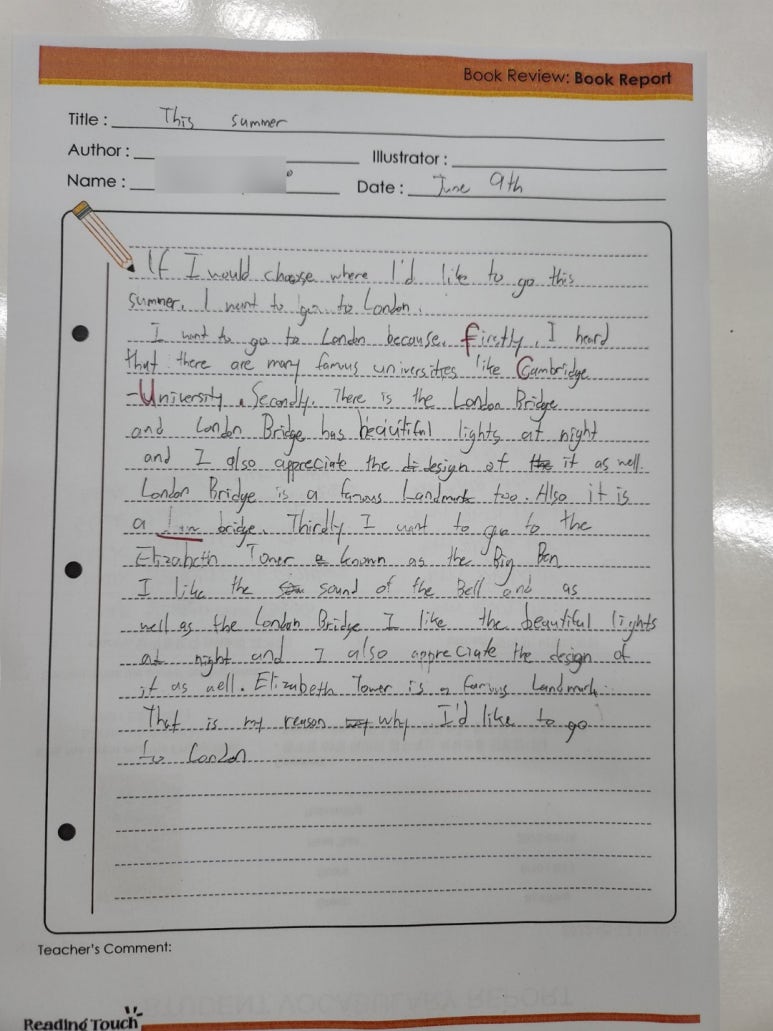 Book Review: Book Report
Title : This summer
Author :
Illustrator :
Name :
Date : June 9th
If I would choose where I'd like to go this
summer, I want to go to London.
I want to go to London because, Firstly, I heard
that there are many famus universities like Cambridge
-University. Secondly. There is the London Bridge
and London Bridge has beautiful lights at night
and I also appreciate the design of it as well.
London Bridge is a famous Landmark too. Also it is
a bridge. Thirdly I want to go to the
Elizabeth Tower known as the Big Ben
I like the sound of the Bell and as
well as the London Bridge I like the beautiful lights
at night and I also appreciate the design of
it as well. Elizabeth Tower is a famous Landmark.
That is my reason why I'd like to go
to London
Teacher's Comment:
Reading Touch